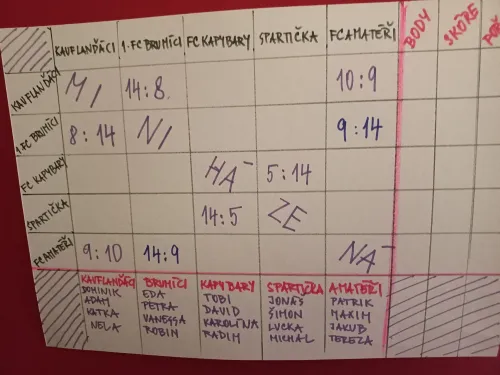 KAUFLANĎÁCI 1.FC BRUMÍCI FC KAPYBARY SPARTIČKA FC AMATÉŘI BODY SKÓRE
KAUFLANĎÁCI MI 14:8 10:9
1.FC BRUMÍCI 8:14 NI 9:14
FC KAPYBARY HA- 5:14
SPARTIČKA 14:5 ZE
FC AMATÉŘI 9:10 14:9 NA-
KAUFLANĎÁCI BRUMÍCI KAPYBARY SPARTIČKA AMATÉŘI
DOMINIK EDA TOBI JONÁŠ PATRIK
ADAM PETRA DAVID ŠIMON MAXIM
KATKA VANESSA KAROLÍNA LUCKA JAKUB
NELA ROBIN RADIM MICHAL TEREZA